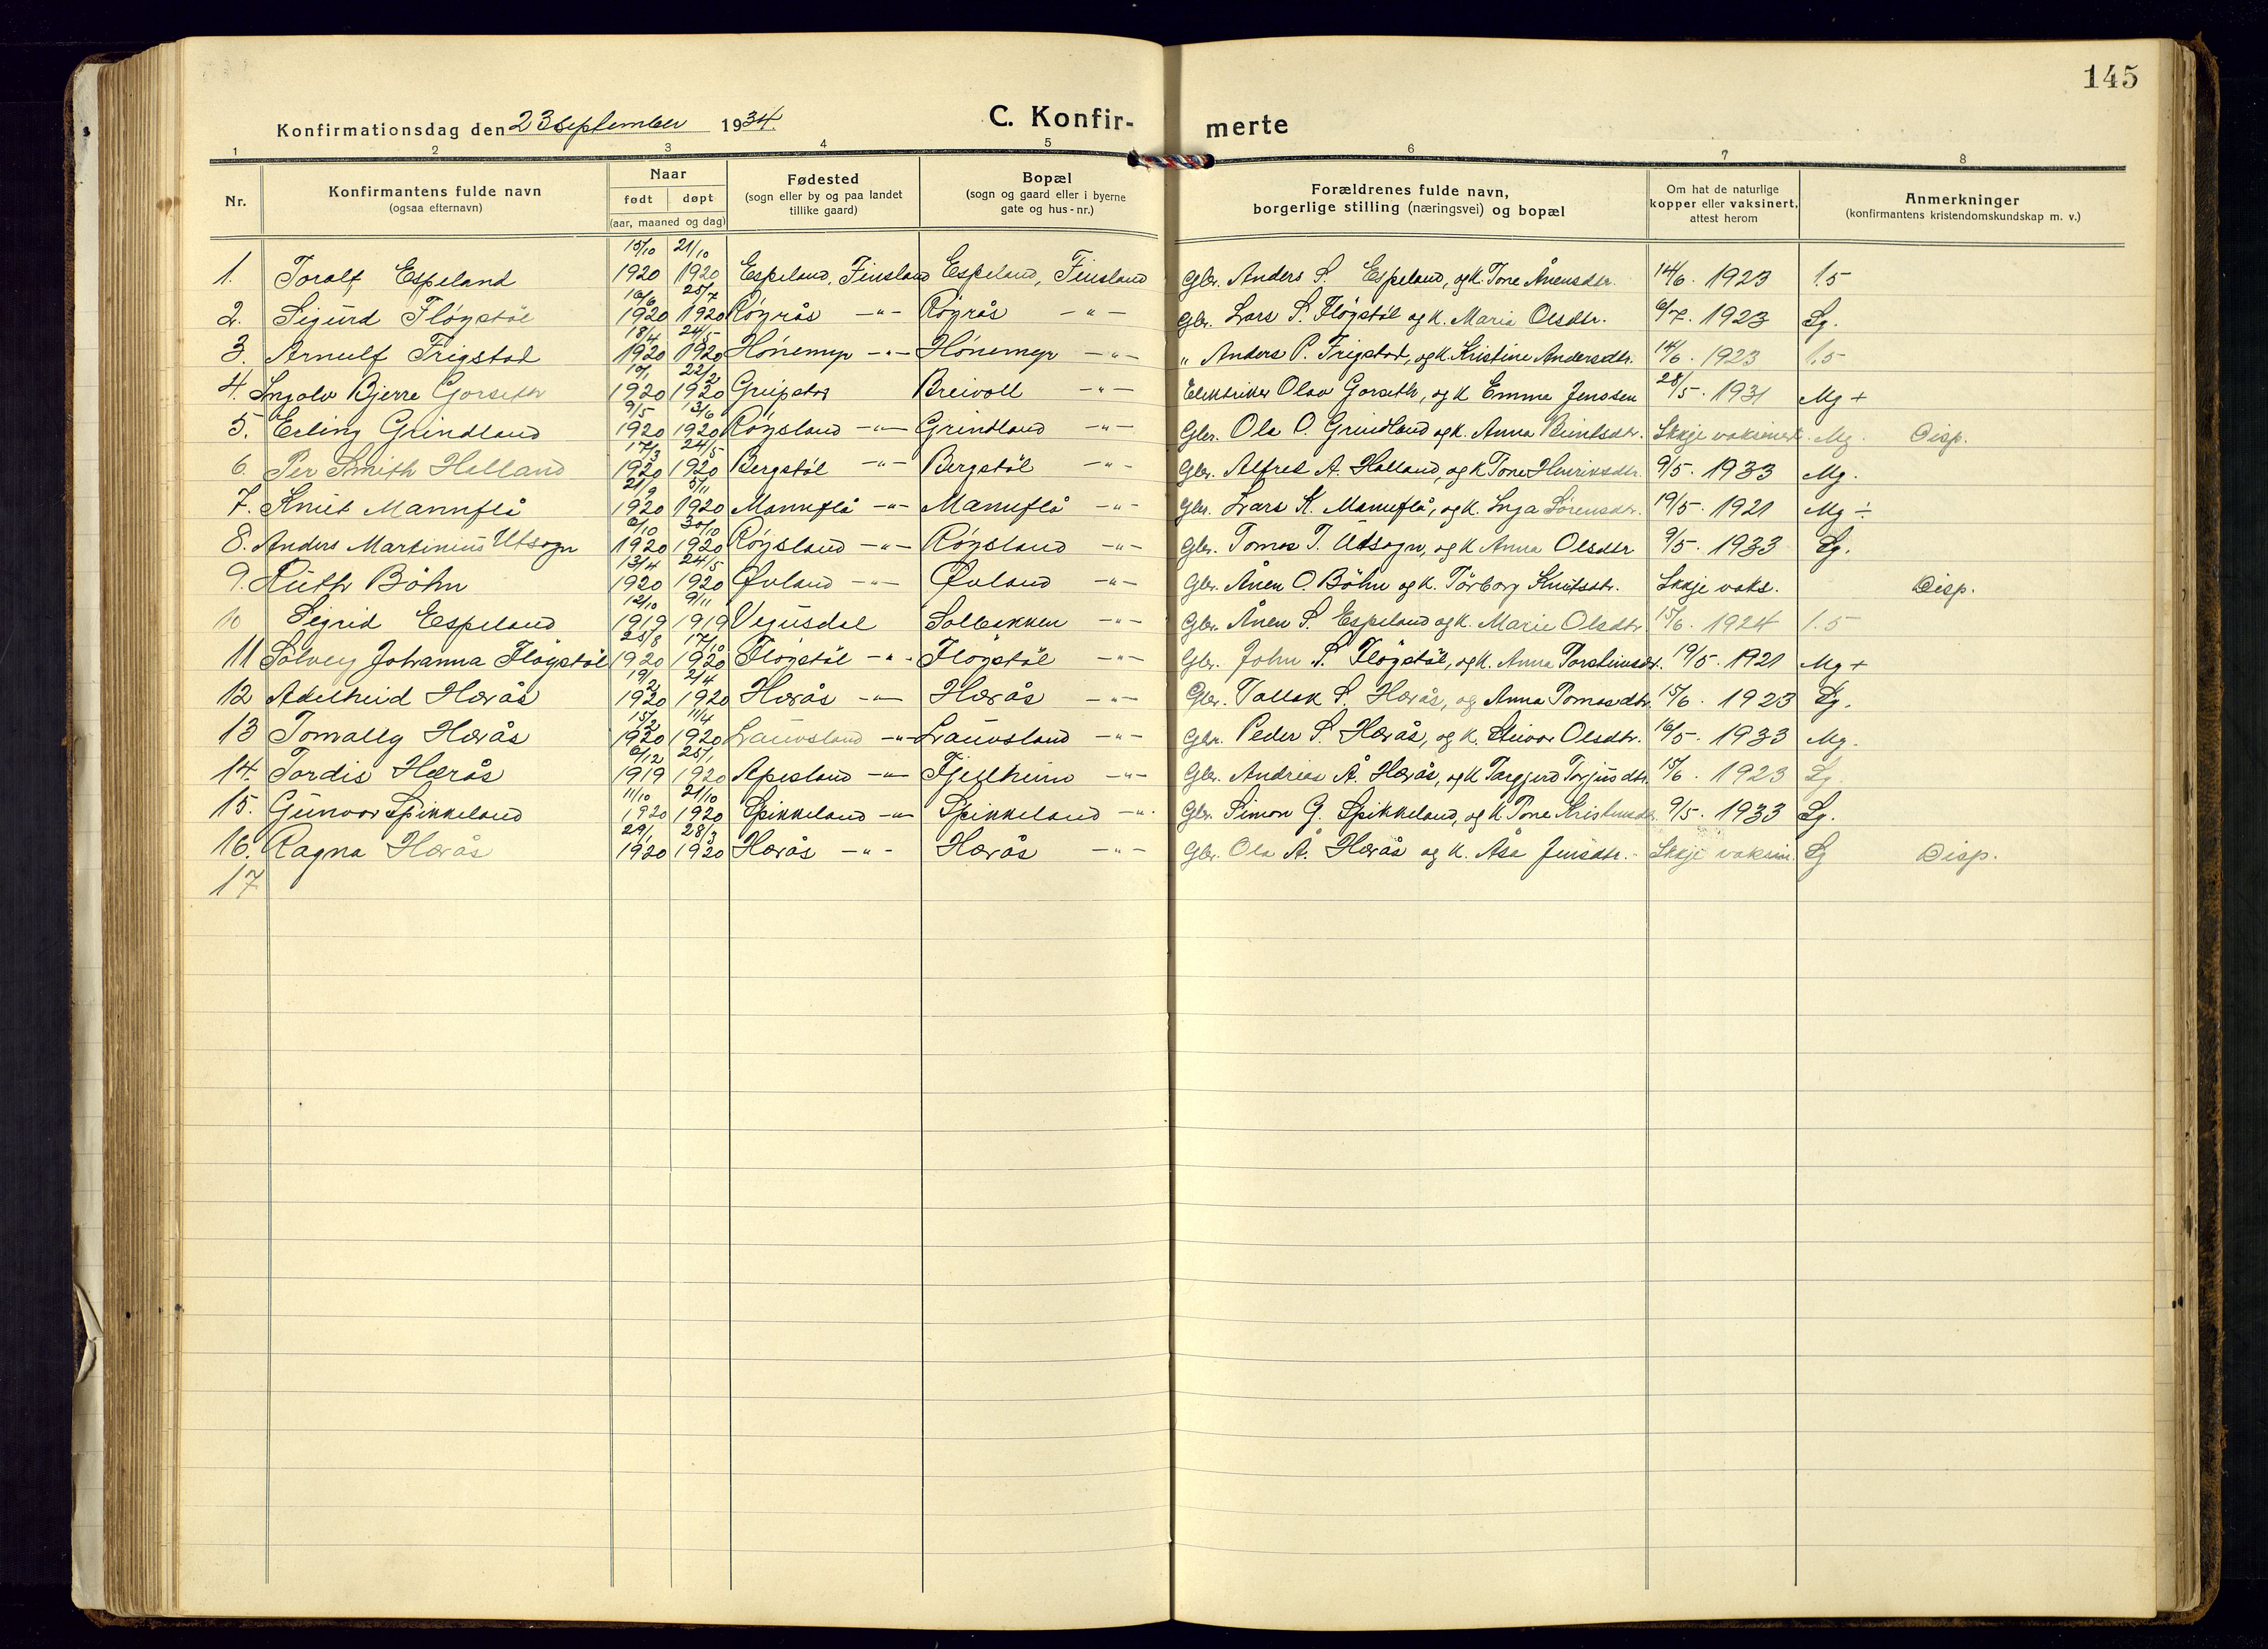 145
Konfirmationsdag den 23 September 1934.
C. Konfir-merte
1 2 3 4 5 6 7 8
Nr. | Konfirmantens fulde navn (ogsaa efternavn) | Naar født døpt (aar, maaned og dag) | Fødested (sogn eller by og paa landet tillike gaard) | Bopæl (sogn og gaard eller i byerne gate og hus-nr.) | Forældrenes fulde navn, borgerlige stilling (næringsvei) og bopæl | Om hat de naturlige kopper eller vaksinert, attest herom | Anmerkninger (konfirmantens kristendomskundskap m. v.)
1. Toralf Espeland 15/10 1920 21/10 1920 Espeland, Finsland Espeland, Finsland Gbr. Anders S. Espeland, og k. Tone Ånensdtr. 14/6. 1923 1.5
2. Sigurd Fløystøl 16/6 1920 25/7 1920 Røyrås -"- Røyrås -"- Gbr. Lars S. Fløystøl og k. Maria Olsdtr. 6/7. 1923 Sg.
3. Arnulf Frigstad 18/4 1920 24/5 1920 Hønemyr -"- Hønemyr -"- " Anders P. Frigstad, og k. Kristine Andersdtr. 14/6. 1923 1.5
4. Ingolv Bjerre Gorseth 1920 22/2 1920 Greipstad Breivoll -"- Elektriker Olav Gorseth, og k Emma Jenssen 28/5. 1931 Mg +
5. Erling Grindland 9/5 1920 13/6 1920 Røysland -"- Grindland -"- Gbr. Ola O. Grindland og k. Anna Berntsdtr. Ikkje vaksinert. Mg. Disp.
6. Per Smith Holland 17/3 1920 24/5 1920 Bergstøl -"- Bergstøl -"- Gbr. Alfred A. Holland, og k Tone Henriksdtr. 9/5. 1933 Mg.
7. Knut Mannflå 21/9 1920 5/11 1920 Mannflå -"- Mannflå -"- Gbr. Lars K. Mannflå, og k. Inga Sørensdtr. 19/5. 1921 Mg ÷
8. Anders Martinius Utsogn 6/10 1920 30/10 1920 Røysland -"- Røysland -"- Gbr. Tomas T. Utsogn, og k Anna Olsdtr 9/5. 1933 Sg.
9. Ruth Bøhn 13/4 1920 24/5 1920 Øvland -"- Øvland -"- Gbr. Ånen O. Bøhn og k. Torborg Knutsdtr. Ikkje vaks. Disp.
10 Sigrid Espeland 12/10 1919 9/11 1919 Vegusdal Solbakken -"- Gbr. Ånen S. Espeland og k. Marie Olsdtr 15/6. 1924 1.5
11 Solveig Johanna Fløystøl 25/8 1920 17/10 1920 Fløystøl -"- Fløystøl -"- Gbr. John S. Fløystøl, og k. Anna Torsteinsdtr. 19/5. 1921 Mg +
12 Adelheid Hærås 19/2 1920 2/4 1920 Hærås -"- Hærås -"- Gbr. Tallak S. Hærås, og Anna Tomasdtr. 15/6. 1923 Sg.
13 Tomally Hærås 15/2 1920 11/4 1920 Lauvsland -"- Lauvsland -"- Gbr. Peder S. Hærås, og k. Steivor Olsdtr. 16/5. 1933 Mg.
14. Tordis Hærås 6/12 1919 25/1 1920 Apesland -"- Fjellheim -"- Gbr. Andreas Å. Hærås, og k Torgjerd Torjusdtr. 15/6. 1923 Sg.
15. Gunvor Spikkeland 11/10 1920 21/10 1920 Spikkeland -"- Spikkeland -"- Gbr. Simon G. Spikkeland, og k Tone 9/5. 1933 Sg.
16. Ragna Hærås 29/1 1920 28/3 1920 Hærås -"- Hærås -"- Gbr. Ola Å. Hærås og k. Åsa Jensdtr. - Ikkje vaksin. Sg Disp.
17